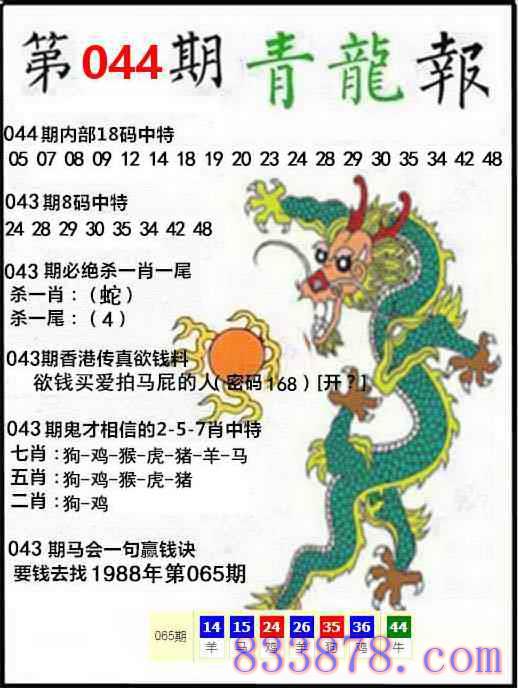 第044期青龍報
044期内部18码中特
05 07 08 09 12 14 18 19 20 23 24 28 29 30 35 34 42 48
043期8码中特
24 28 29 30 35 34 42 48
043期必绝杀一肖一尾
杀一肖：（蛇）
杀一尾：（4）
043期香港传真欲钱料
欲钱买爱拍马屁的人(密码168)[开?]
043期鬼才相信的2-5-7肖中特
七肖：狗-鸡-猴-虎-猪-羊-马
五肖：狗-鸡-猴-虎-猪
二肖：狗-鸡
043期马会一句赢钱诀
要钱去找1988年第065期
065期 14 15 24 26 35 36 44
羊 马 鸡 羊 狗 鸡 牛
833878.com